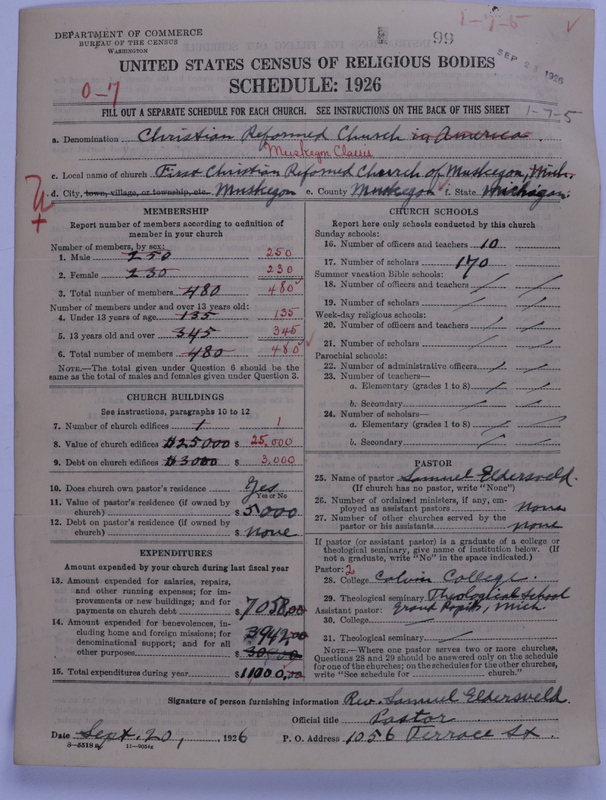 1-7-5
DEPARTMENT OF COMMERCE
BUREAU OF THE CENSUS
WASHINGTON
99
SEP 23 1926
UNITED STATES CENSUS OF RELIGIOUS BODIES
SCHEDULE: 1926
0-7
FILL OUT A SEPARATE SCHEDULE FOR EACH CHURCH. SEE INSTRUCTIONS ON THE BACK OF THIS SHEET
1-7-5
a. Denomination Christian Reformed Church in America
Muskegon Classis
c. Local name of church First Christian Reformed Church of Muskegon, Mich.
d. City, town, village, or township, etc. Muskegon e. County Muskegon f. State Michigan.
MEMBERSHIP
Report number of members according to definition of member in your church
Number of members, by sex:
1. Male 250 250
2. Female 230 230
3. Total number of members 480 480
Number of members under and over 13 years old:
4. Under 13 years of age 135 135
5. 13 years old and over 345 345
6. Total number of members 480 480
NOTE.—The total given under Question 6 should be the same as the total of males and females given under Question 3.
CHURCH BUILDINGS
See instructions, paragraphs 10 to 12
7. Number of church edifices 1 1
8. Value of church edifices $25000 $ 25,000
9. Debt on church edifices $3000 $ 3,000
10. Does church own pastor's residence Yes
Yes or No
11. Value of pastor's residence (if owned by church) $ 5000
12. Debt on pastor's residence (if owned by church) $ none
EXPENDITURES
Amount expended by your church during last fiscal year
13. Amount expended for salaries, repairs, and other running expenses; for improvements or new buildings; and for payments on church debt $ 7058,00
14. Amount expended for benevolences, including home and foreign missions; for denominational support; and for all other purposes 3942,00
$
15. Total expenditures during year $ 11000,00
CHURCH SCHOOLS
Report here only schools conducted by this church
Sunday schools:
16. Number of officers and teachers 10
17. Number of scholars 170
Summer vacation Bible schools:
18. Number of officers and teachers /
19. Number of scholars /
Week-day religious schools:
20. Number of officers and teachers /
21. Number of scholars /
Parochial schools:
22. Number of administrative officers /
23. Number of teachers—
a. Elementary (grades 1 to 8) /
b. Secondary /
24. Number of scholars—
a. Elementary (grades 1 to 8) /
b. Secondary /
PASTOR
25. Name of pastor Samuel Eldersveld.
(If church has no pastor, write "None")
26. Number of ordained ministers, if any, employed as assistant pastors None
27. Number of other churches served by the pastor or his assistants none
If pastor (or assistant pastor) is a graduate of a college or theological seminary, give name of institution below. (If not a graduate, write "No" in the space indicated.)
Pastor: 2
28. College Calvin College.
29. Theological seminary Theological School
Assistant pastor: Grand Rapids, Mich.
30. College /
31. Theological seminary /
NOTE.—Where one pastor serves two or more churches, Questions 28 and 29 should be answered only on the schedule for one of the churches; on the schedules for the other churches, write "See schedule for ______ church."
Signature of person furnishing information Rev. Samuel Eldersveld
Official title Pastor
Date Sept. 20, 1926 P. O. Address 1056 Terrace St.
8—5518 a 11—9034